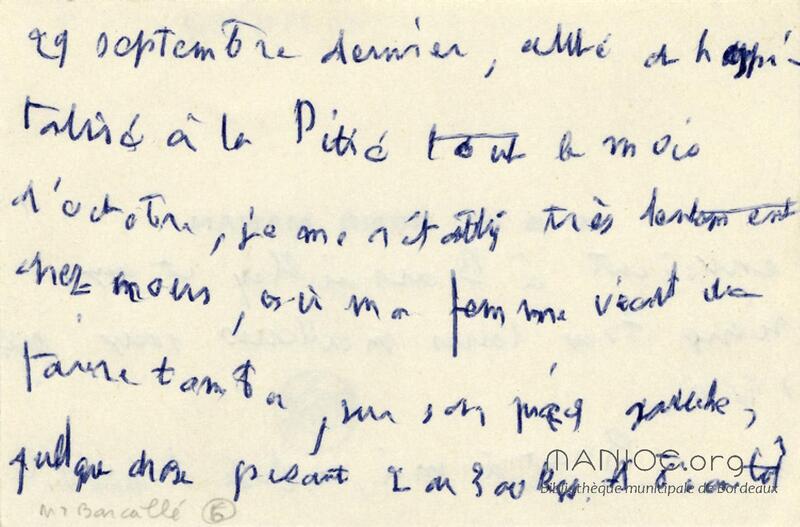 29 septembre dernier, alité et hospi-
talisé à la Pitié tout le mois
d'octobre, je me rétablis très lentement
chez nous, où ma femme vient de
faire tomber, sur son pied gauche,
quelque chose pesant 2 ou 300 kgs. A bientôt
MANIOC.org
Bibliothèque municipale de Bordeaux
Mr Bareallé 6